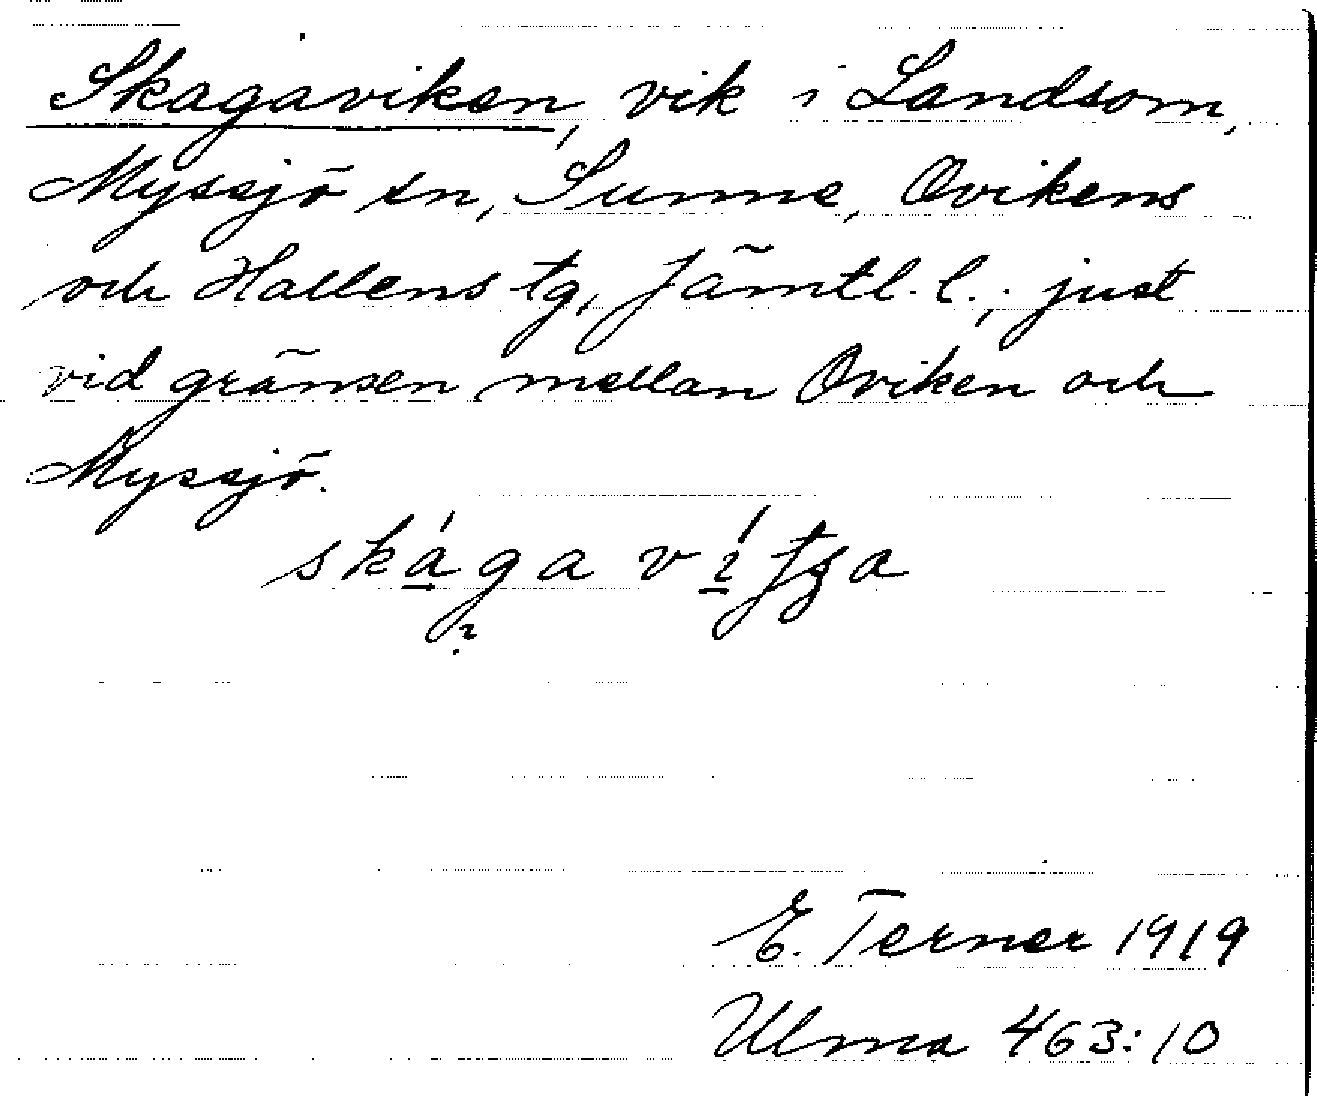 Skagaviken, vik i Landsom,
Myssjö sn, Sunne, Ovikens
och Hallens tg, Jämtl. l.; just
vid gränsen mellan Oviken och
Myssjö.
skága
E. Terner 1919
Ulma 463:10